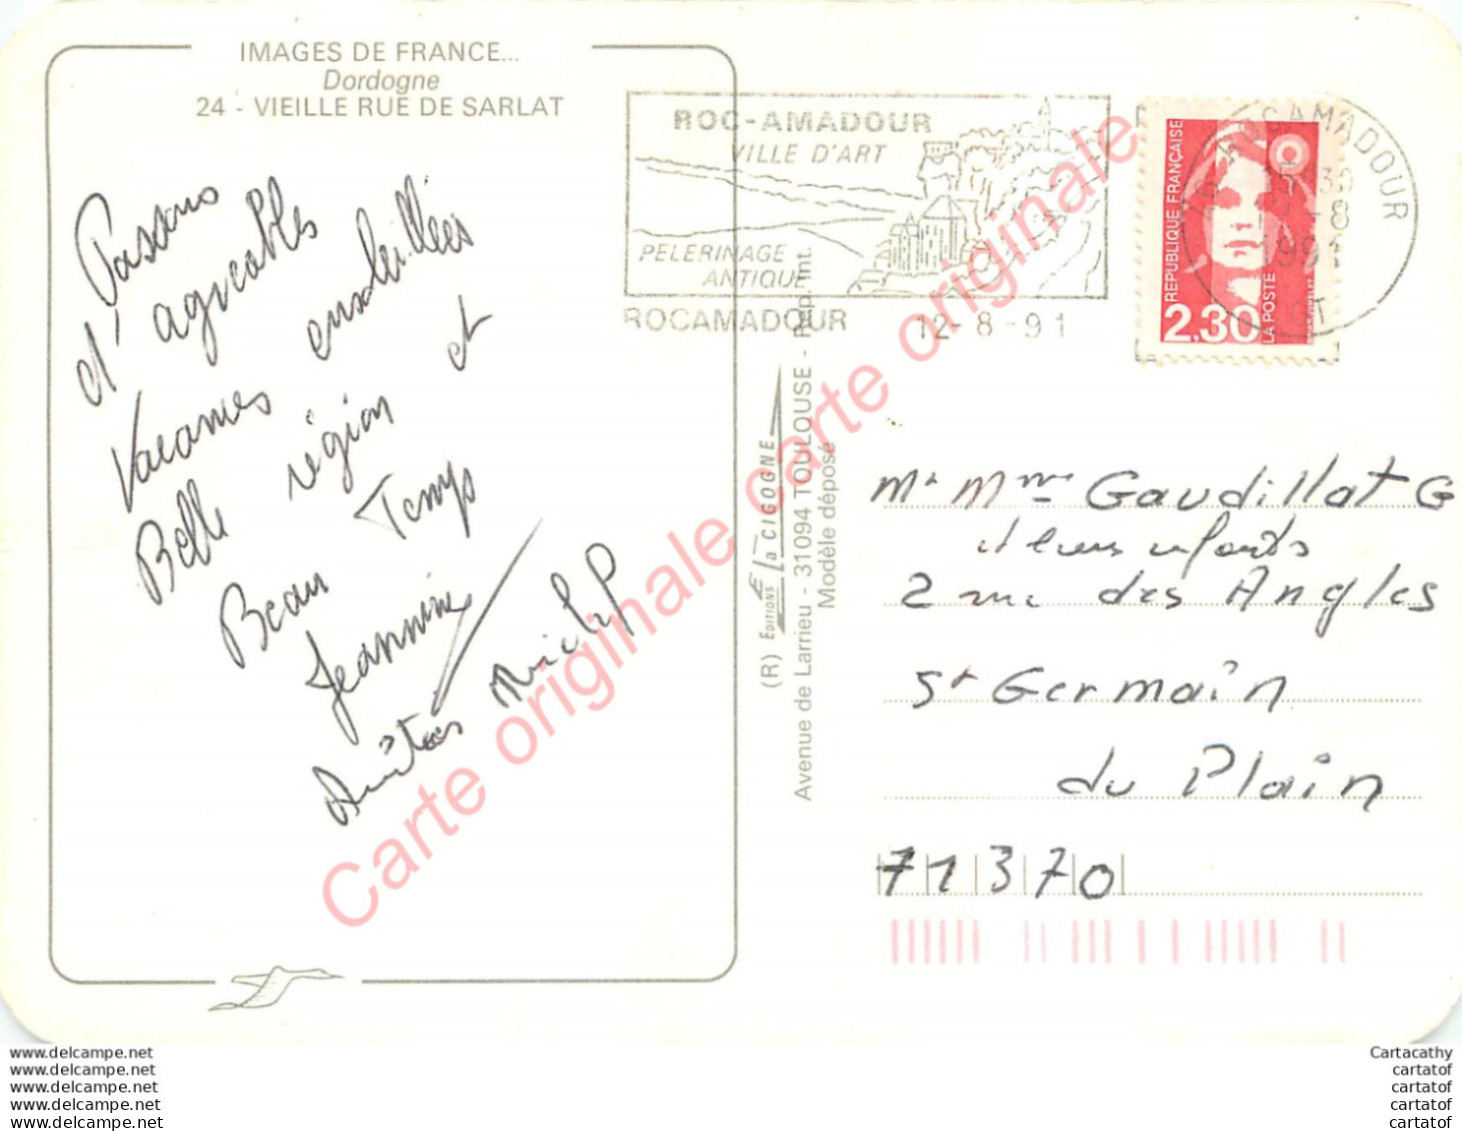 IMAGES DE FRANCE...
Dordogne
24 - VIEILLE RUE DE SARLAT
Passons
d'agréables
Vacances ensoleillées
Belle région et
Beau Temps
Jeannine
Michel
ROC-AMADOUR
VILLE D'ART
PELERINAGE
ANTIQUE
ROCAMADOUR 12-8-91
ROCAMADOUR
1991
LOT
REPUBLIQUE FRANÇAISE
2,30
LA POSTE
(R) EDITIONS La CIGOGNE
Avenue de Larrieu - 31094 TOULOUSE - Rep. int.
Modèle déposé
Mr Mme Gaudillat G
et leurs enfants
2 rue des Angles
St Germain
du Plain
71370
Carte originale carte originale
www.delcampe.net
www.delcampe.net
www.delcampe.net
www.delcampe.net
www.delcampe.net
Cartacathy
cartatof
cartatof
cartatof
cartatof